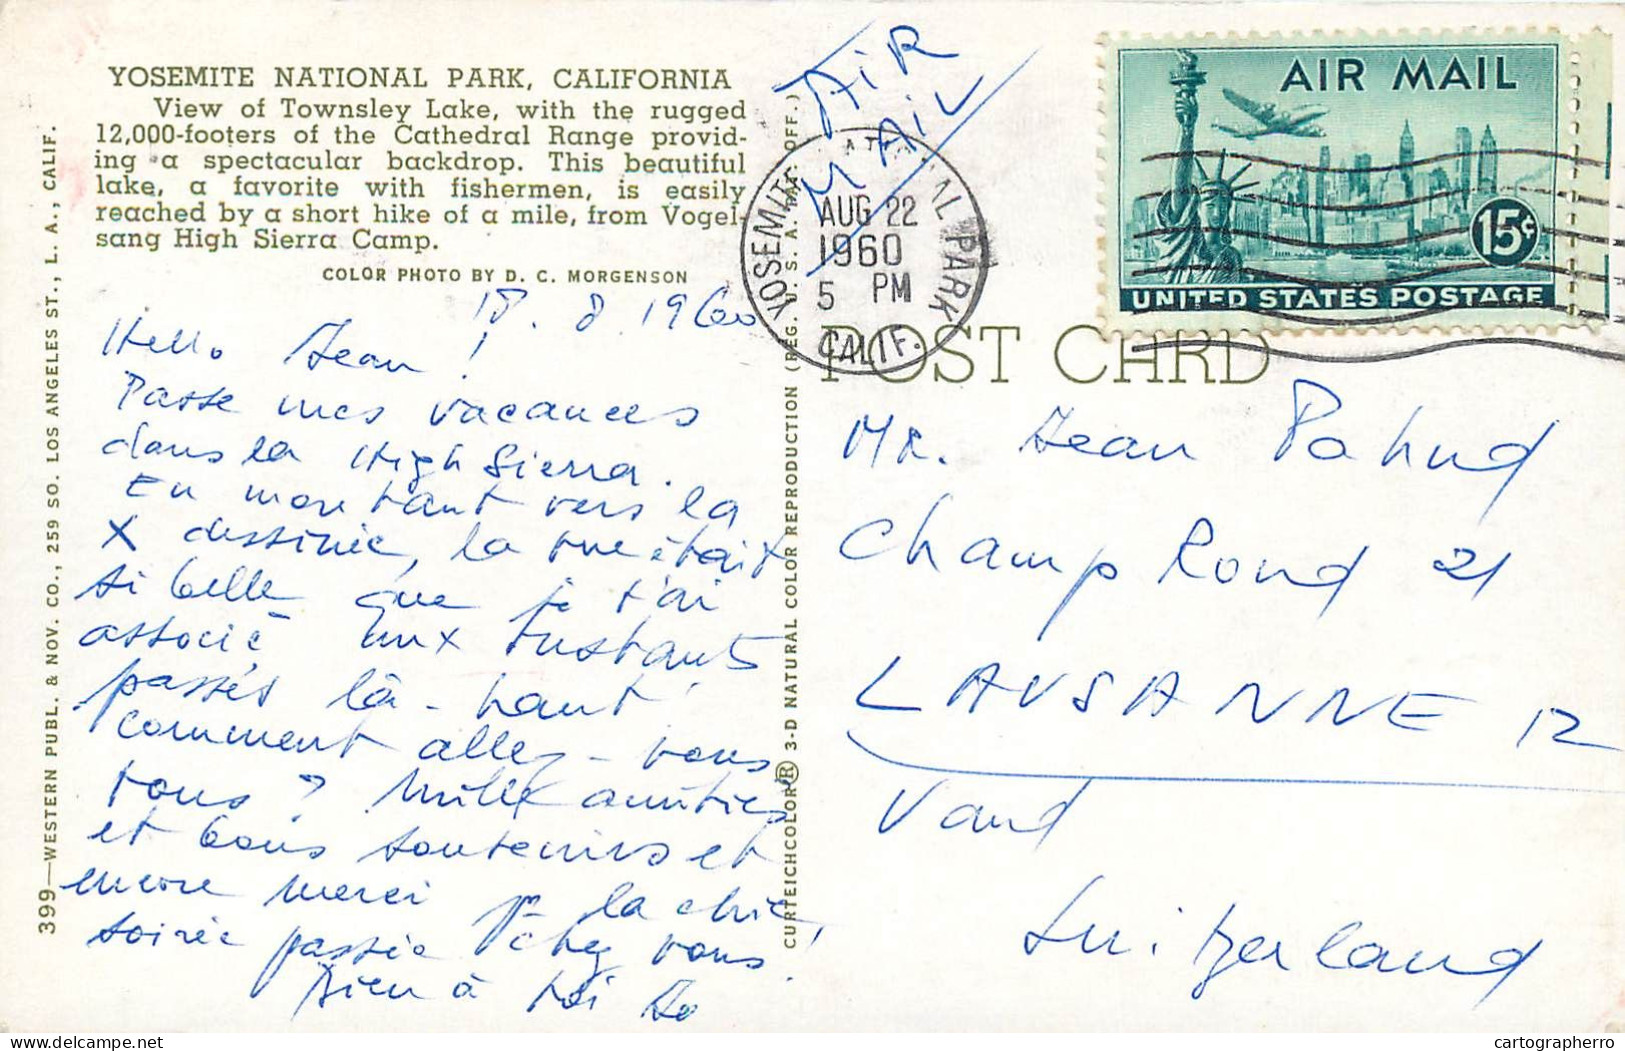 YOSEMITE NATIONAL PARK, CALIFORNIA
View of Townsley Lake, with the rugged
12,000-footers of the Cathedral Range provid-
ing a spectacular backdrop. This beautiful
lake, a favorite with fishermen, is easily
reached by a short hike of a mile, from Vogel-
sang High Sierra Camp.
COLOR PHOTO BY D. C. MORGENSON
18. 8. 1960
Hello Jean !
Passe mes vacances
dans la High Sierra.
En montant vers la
X dessinée, la vue était
si belle que je t'ai
associé aux instants
passés là-haut
comment allez-vous
tous ? Mille amitiés
et bons souvenirs et
encore merci p. la chic
soirée passée chez vous !
Bien à toi Jo
399—WESTERN PUBL. & NOV. CO., 259 SO. LOS ANGELES ST., L. A., CALIF.
CURTEICHCOLOR® 3-D NATURAL COLOR REPRODUCTION (REG. U. S. A. PAT. OFF.)
AIR
MAIL
YOSEMITE NATIONAL PARK
AUG 22
1960
5 PM
CALIF.
AIR MAIL
15¢
UNITED STATES POSTAGE
POST CARD
Mr. Jean Pahud
Champ Rond 21
LAUSANNE 12
Vaud
Switzerland
cartographerro